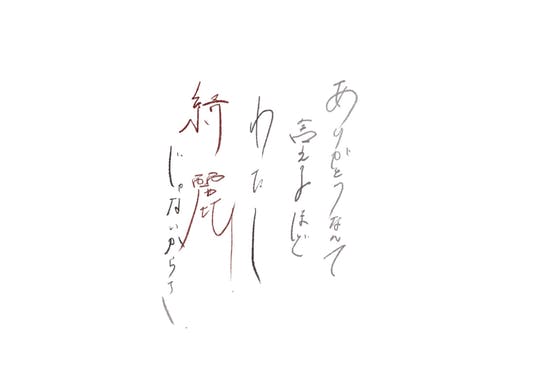 ありがとうなんて
言えるほど
わたし
綺麗
じゃないからさ